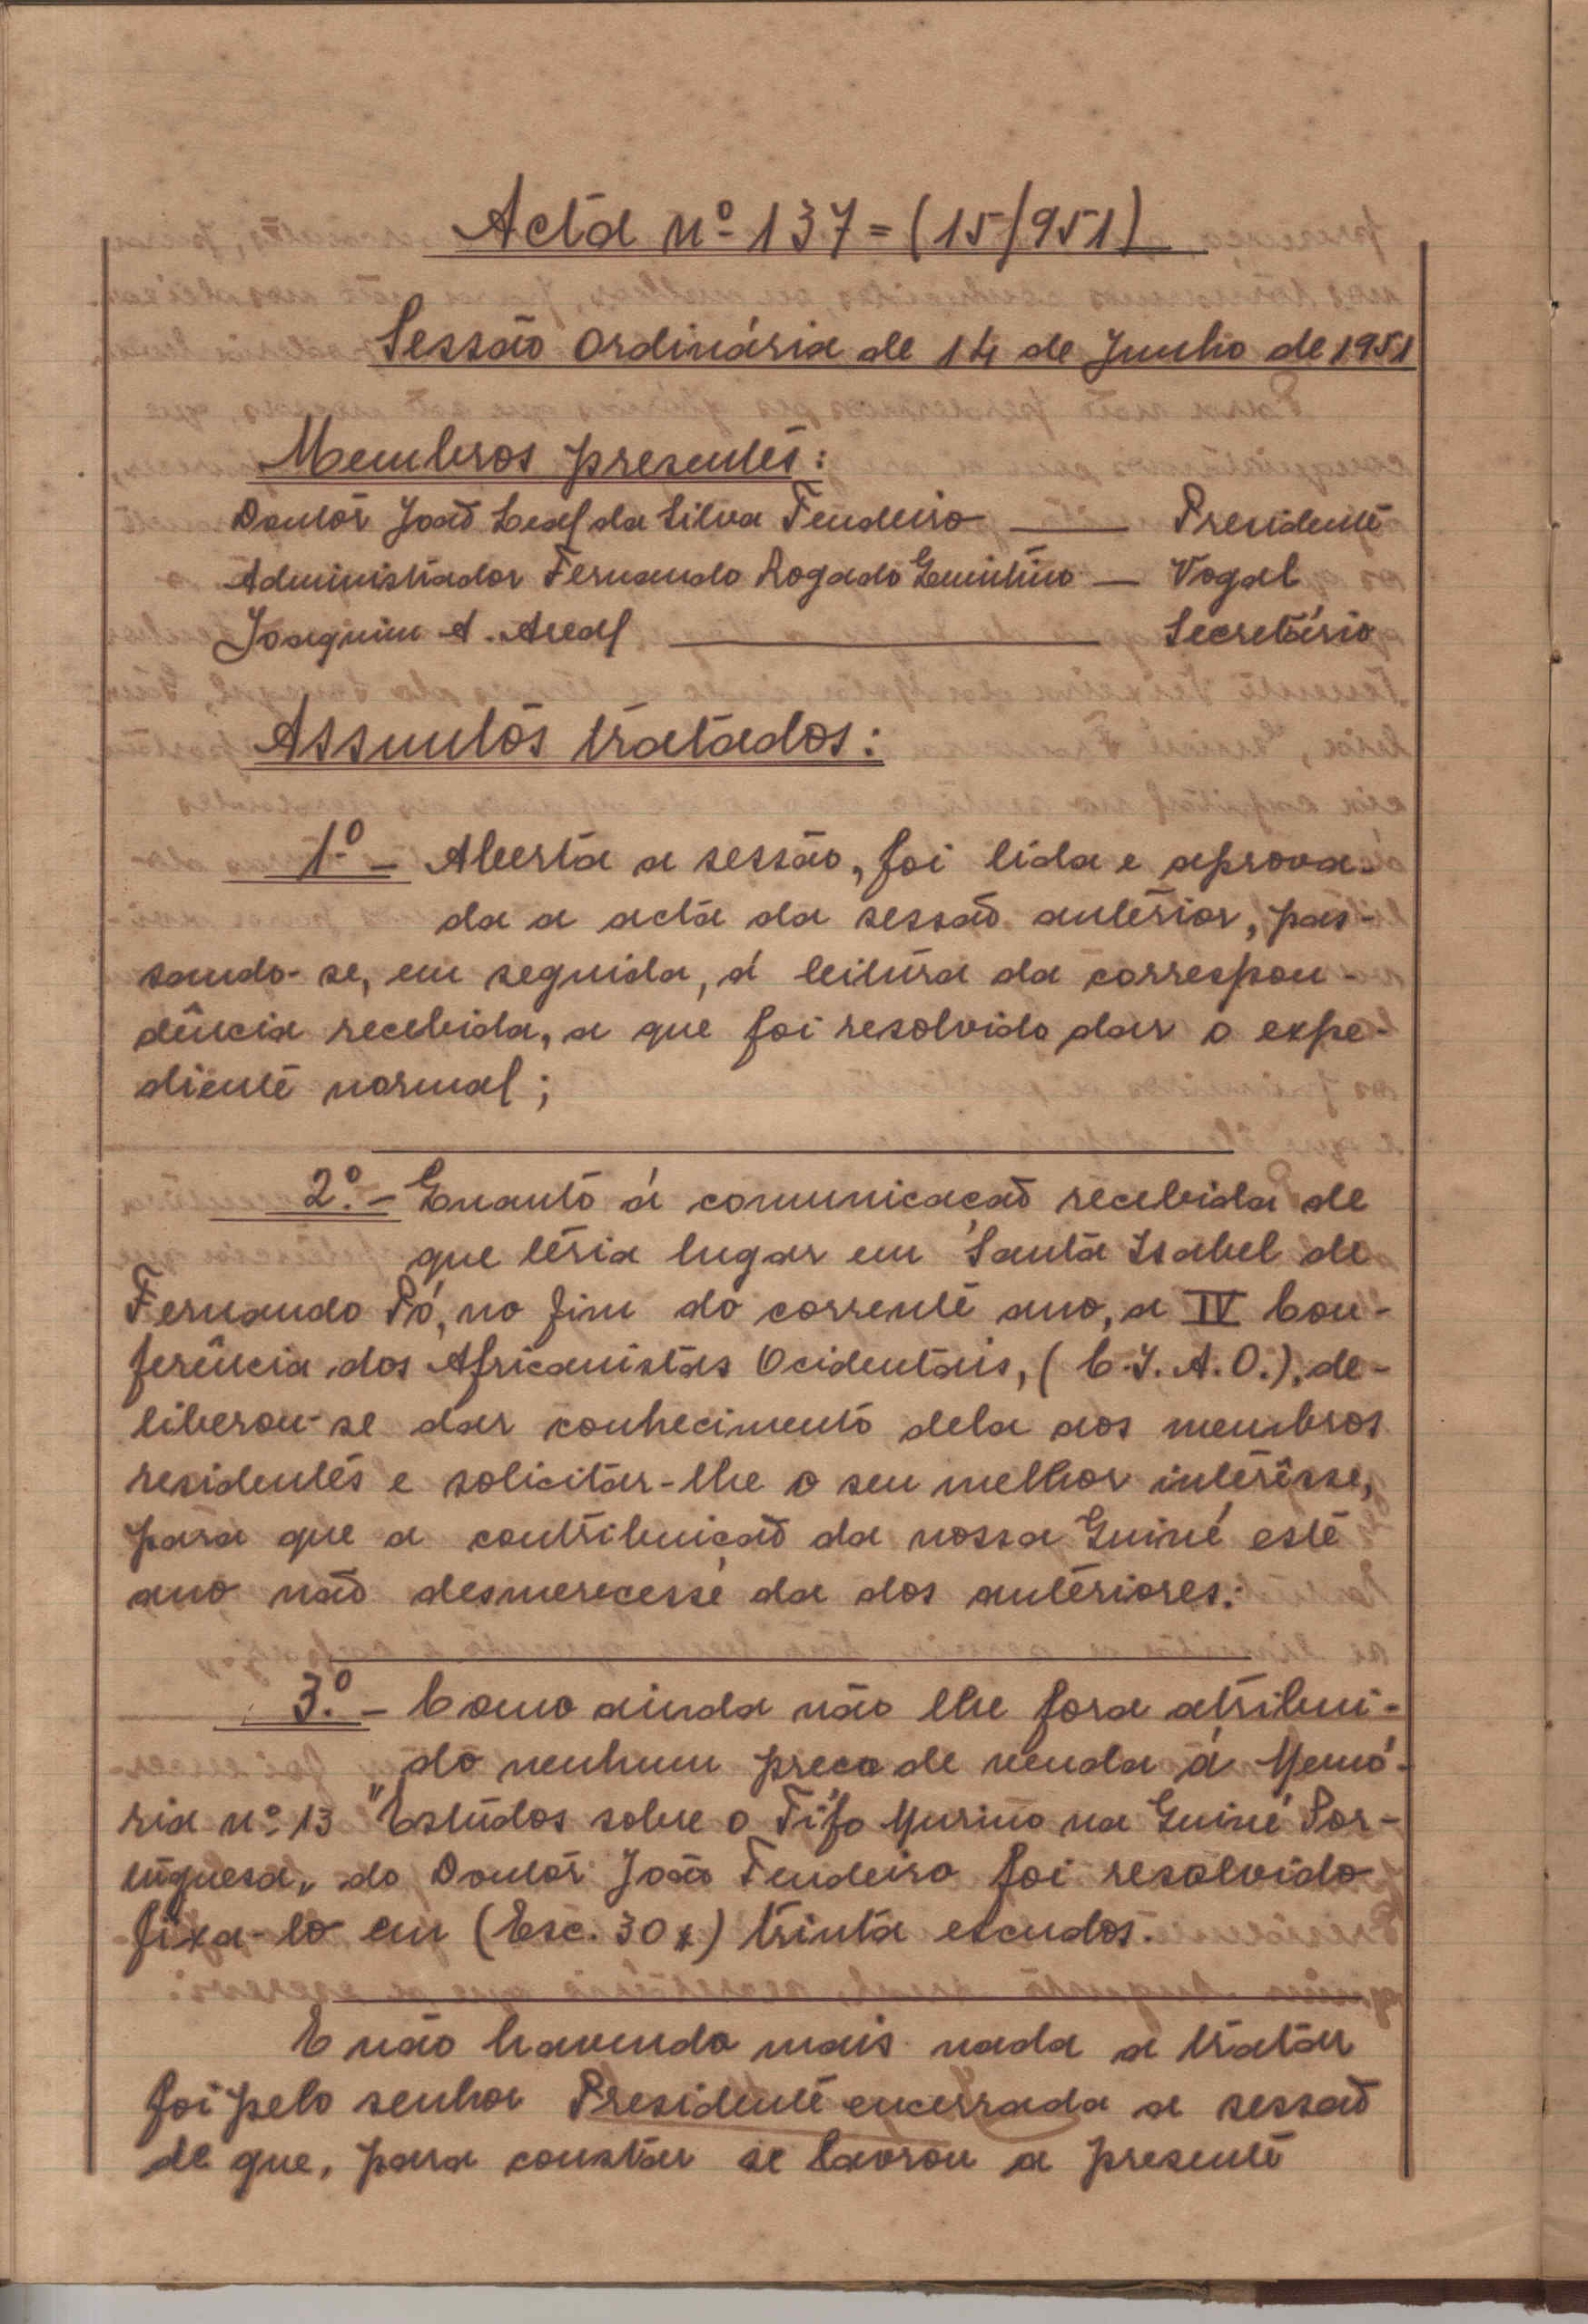 Acta nº 137 = (15/951)
Sessão Ordinária de 14 de Junho de 1951
Membros presentes:
Doutor João Leal da Silva Tendeiro — Presidente
Administrador Fernando Rogado Quintino — Vogal
Joaquim A. Areal — Secretário
Assuntos tratados:
1º - Aberta a sessão, foi lida e aprova-
da a acta da sessão anterior, pas-
sando-se, em seguida, á leitura da correspon-
dência recebida, a que foi resolvido dar o expe-
diente normal;
2º. - Quanto á comunicação recebida de
que teria lugar em Santa Isabel de
Fernando Pó, no fim do corrente ano, a IV Con-
ferência dos Africanistas Ocidentais, (C.I.A.O.), de-
liberou-se dar conhecimento dela aos membros
residentes e solicitar-lhe o seu melhor interêsse,
para que a contribuição da nossa Guiné este
ano não desmerecesse da dos anteriores.
3º. - Como ainda não lhe fora atribui-
do nenhum preço de venda á Memó-
ria nº 13 "Estudos sobre o Tifo Murino na Guiné Por-
tuguesa" do Doutor João Tendeiro foi resolvido
fixa-lo em (Esc. 30$) trinta escudos.
E não havendo mais nada a tratar
foi pelo senhor Presidente encerrada a sessão
de que, para constar se lavrou a presente